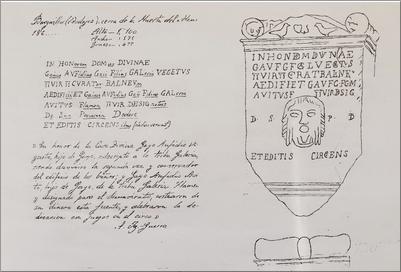 Burguillos (Badajoz), cerca de la Huerta del
186...
Alto - 1,100
Ancho - 
Grueso - 
IN HONorem DOMus DIVINAE
Gaius AVFidius Gaii Filius GALeria VEGETUS
IIVIR II CVRATor BALNEVm
AEDIFIET Gaius AVFidius Gaii Filius GALeria
AVITUS Flamen IIVIR DESIGnatus
De Sua Pecunia Dedit
ET EDITIS CIRCENSibus
En honor de la Casa Divina Gayo Aufidio Ve-
geto, hijo de Gayo, adscripto a la tribu Galeria,
siendo duunviro la segunda vez y conservador
del edificio de los baños; y Gayo Aufidio Avi-
to, hijo de Gayo, de la tribu Galeria, Flamen
y designado para el duunvirato, costearon de
su dinero esta fuente, y celebraron la de-
dicacion con juegos en el circo
IN HONDMDVNAE
GAVFGFGLVEGTVS
IIVIRIICRATBALNE
AEDIFIETGAVFGFGM
AVITVSF IIVIRDSIG
D S P D
ETEDITIS CIRCENS